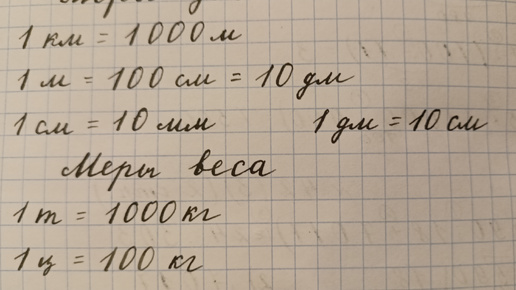 1 км = 1000 м
1 м = 100 см = 10 дм
1 см = 10 мм 1 дм = 10 см
Меры веса
1 т = 1000 кг
1 ц = 100 кг